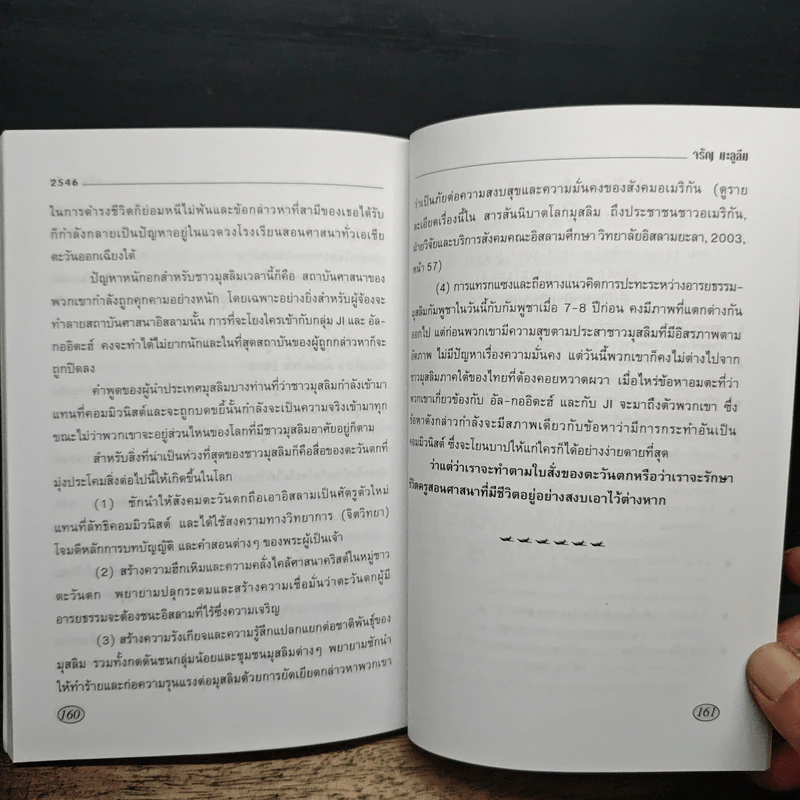 2546
ในการดำรงชีวิตก็ย่อมหนีไม่พ้นและข้อกล่าวหาที่สามีของเธอได้รับ
ก็กำลังกลายเป็นปัญหาอยู่ในแวดวงโรงเรียนสอนศาสนาทั่วเอเชีย
ตะวันออกเฉียงใต้
ปัญหาหนักอกสำหรับชาวมุสลิมเวลานี้ก็คือ สถาบันศาสนาของ
พวกเขากำลังถูกคุกคามอย่างหนัก โดยเฉพาะอย่างยิ่งสำหรับผู้จ้องจะ
ทำลายสถาบันศาสนาอิสลามนั้น การที่จะโยงใครเข้ากับกลุ่ม JI และ อัล-
กออิดะฮ์ คงจะทำได้ไม่ยากนักและในที่สุดสถาบันของผู้ถูกกล่าวหาก็จะ
ถูกปิดลง
คำพูดของผู้นำประเทศมุสลิมบางท่านที่ว่าชาวมุสลิมกำลังเข้ามา
แทนที่คอมมิวนิสต์และจะถูกบดขยี้นั้นกำลังจะเป็นความจริงเข้ามาทุก
ขณะไม่ว่าพวกเขาจะอยู่ส่วนไหนของโลกที่มีชาวมุสลิมอาศัยอยู่ก็ตาม
สำหรับสิ่งที่น่าเป็นห่วงที่สุดของชาวมุสลิมก็คือสื่อของตะวันตกที่
มุ่งประโคมสิ่งต่อไปนี้ให้เกิดขึ้นในโลก
(1) ชักนำให้สังคมตะวันตกถือเอาอิสลามเป็นศัตรูตัวใหม่
แทนที่ลัทธิคอมมิวนิสต์ และได้ใช้สงครามทางวิทยาการ (จิตวิทยา)
โจมตีหลักการบทบัญญัติ และคำสอนต่างๆ ของพระผู้เป็นเจ้า
(2) สร้างความฮึกเหิมและความคลั่งไคล้ศาสนาคริสต์ในหมู่ชาว
ตะวันตก พยายามปลุกระดมและสร้างความเชื่อมั่นว่าตะวันตกผู้มี
อารยธรรมจะต้องชนะอิสลามที่ไร้ซึ่งความเจริญ
(3) สร้างความรังเกียจและความรู้สึกแปลกแยกต่อชาติพันธุ์ของ
มุสลิม รวมทั้งกดดันชนกลุ่มน้อยและชุมชนมุสลิมต่างๆ พยายามชักนำ
ให้ทำร้ายและก่อความรุนแรงต่อมุสลิมด้วยการยัดเยียดกล่าวหาพวกเขา
160
จรัญ มะลูลีม
ว่าเป็นภัยต่อความสงบสุขและความมั่นคงของสังคมอเมริกัน (ดูราย
ละเอียดเรื่องนี้ใน สารสันนิบาตโลกมุสลิม ถึงประชาชนชาวอเมริกัน,
ฝ่ายวิจัยและบริการสังคมคณะอิสลามศึกษา วิทยาลัยอิสลามยะลา, 2003,
หน้า 57)
(4) การแทรกแซงและถือหางแนวคิดการปะทะระหว่างอารยธรรม-
มุสลิมกัมพูชาในวันนี้กับกัมพูชาเมื่อ 7-8 ปีก่อน คงมีภาพที่แตกต่างกัน
ออกไป แต่ก่อนพวกเขามีความสุขตามประสาชาวมุสลิมที่มีอิสรภาพตาม
อัตภาพ ไม่มีปัญหาเรื่องความมั่นคง แต่วันนี้พวกเขาก็คงไม่ต่างไปจาก
ชาวมุสลิมภาคใต้ของไทยที่ต้องคอยหวาดผวา เมื่อไหร่ข้อหาอมตะที่ว่า
พวกเขาเกี่ยวข้องกับ อัล-กออิดะฮ์ และกับ JI จะมาถึงตัวพวกเขา ซึ่ง
ข้อหาดังกล่าวกำลังจะมีสภาพเดียวกับข้อหาว่ามีการกระทำอันเป็น
คอมมิวนิสต์ ซึ่งจะโยนบาปให้แก่ใครก็ได้อย่างง่ายดายที่สุด
ว่าแต่ว่าเราจะทำตามใบสั่งของตะวันตกหรือว่าเราจะรักษา
ชีวิตครูสอนศาสนาที่มีชีวิตอยู่อย่างสงบเอาไว้ต่างหาก
161